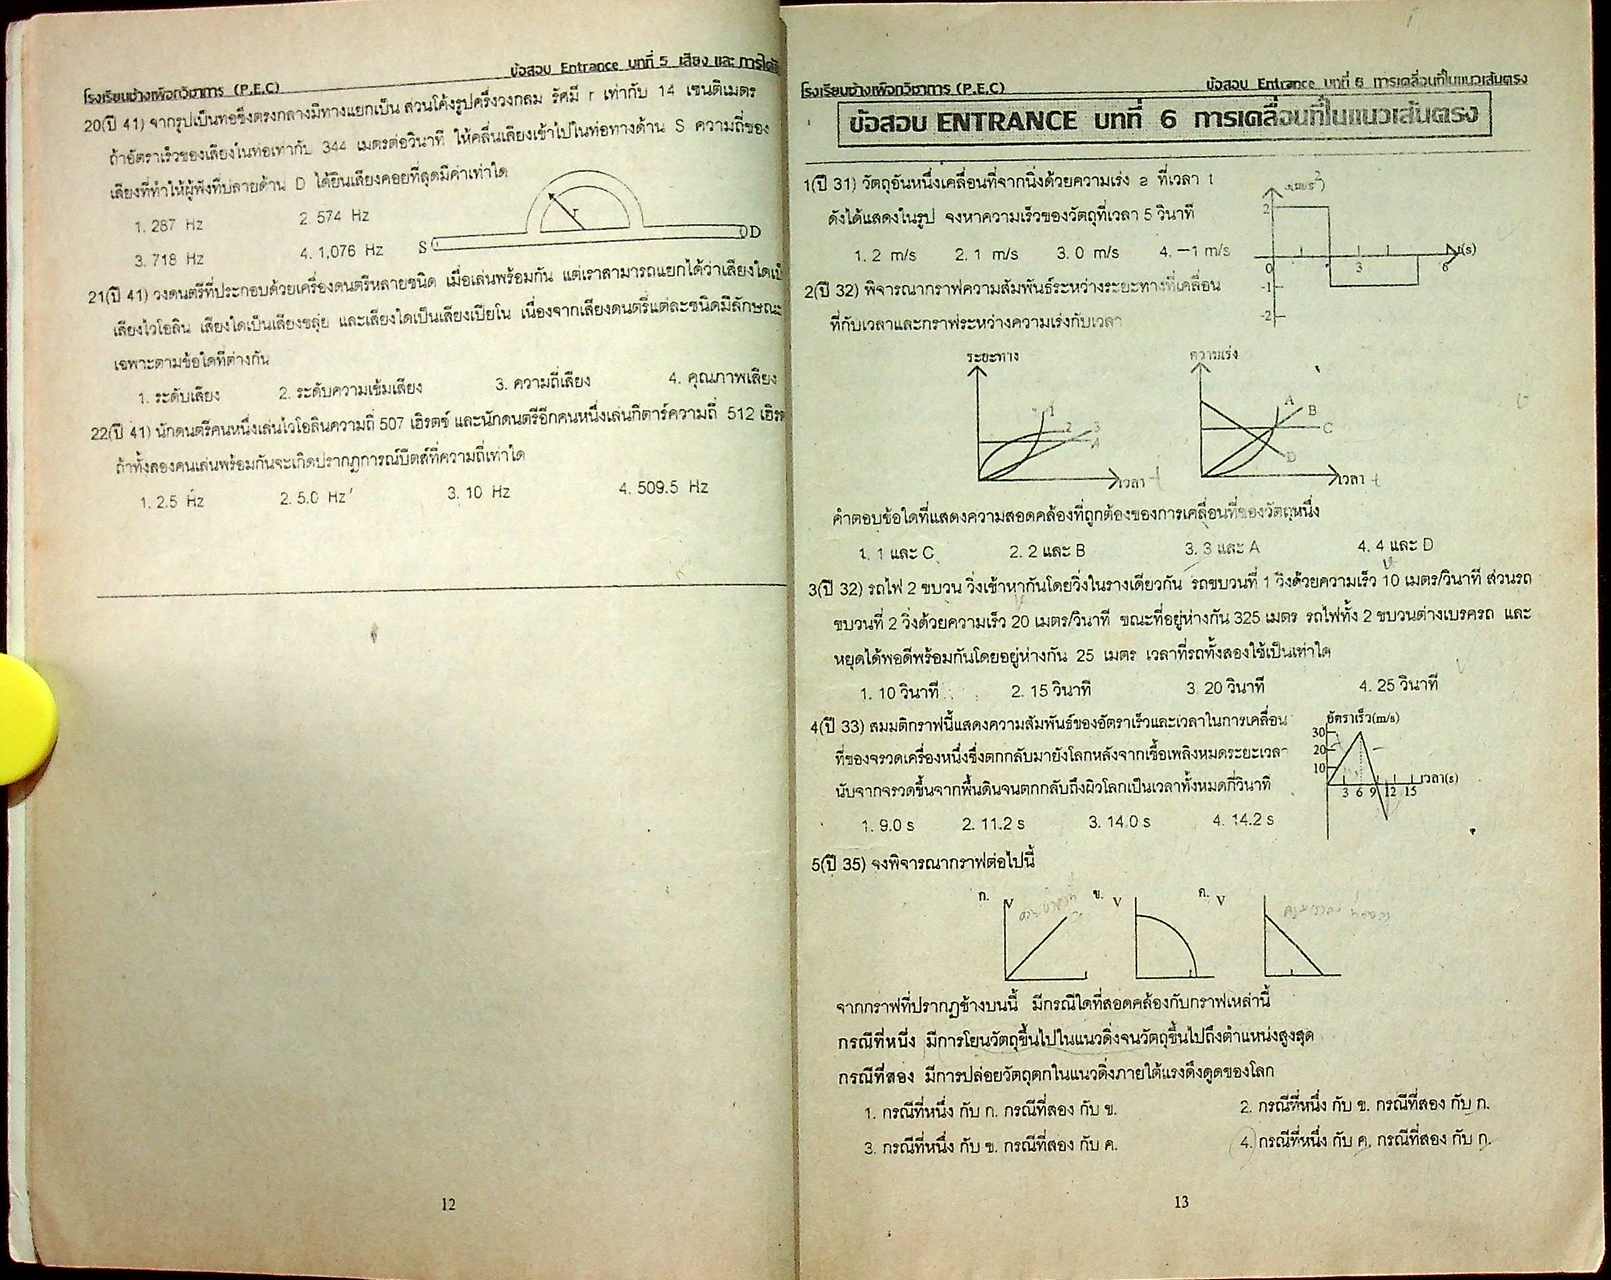 ข้อสอบ Entrance บทที่ 5 เสียง และ การได้
โรงเรียนช้างเผือกวิชาการ (P.E.C)
20(ปี 41) จากรูปเป็นท่อซึ่งตรงกลางมีทางแยกเป็น ส่วนโค้งรูปครึ่งวงกลม รัศมี r เท่ากับ 14 เซนติเมตร
ถ้าอัตราเร็วของเสียงในท่อเท่ากับ 344 เมตรต่อวินาที ให้คลื่นเสียงเข้าไปในท่อทางด้าน S ความถี่ของ
เสียงที่ทำให้ผู้ฟังที่ปลายด้าน D ได้ยินเสียงค่อยที่สุดมีค่าเท่าใด
1. 287 Hz 2 574 Hz
3. 718 Hz 4. 1,076 Hz
r
S D
21(ปี 41) วงดนตรีที่ประกอบด้วยเครื่องดนตรีหลายชนิด เมื่อเล่นพร้อมกัน แต่เราสามารถแยกได้ว่าเสียงใดเป็
เสียงไวโอลิน เสียงใดเป็นเสียงขลุ่ย และเสียงใดเป็นเสียงเปียโน เนื่องจากเสียงดนตรีแต่ละชนิดมีลักษณะ
เฉพาะตามข้อใดที่ต่างกัน
1. ระดับเสียง 2. ระดับความเข้มเสียง 3. ความถี่เสียง 4. คุณภาพเสียง
22(ปี 41) นักดนตรีคนหนึ่งเล่นไวโอลินความถี่ 507 เฮิรตซ์ และนักดนตรีอีกคนหนึ่งเล่นกีตาร์ความถี่ 512 เฮิร
ถ้าทั้งสองคนเล่นพร้อมกันจะเกิดปรากฏการณ์บีตส์ที่ความถี่เท่าใด
1. 2.5 Hz 2. 5.0 Hz 3. 10 Hz 4. 509.5 Hz
12
โรงเรียนช้างเผือกวิชาการ (P.E.C) ข้อสอบ Entrance บทที่ 6 การเคลื่อนที่ในแนวเส้นตรง
ข้อสอบ ENTRANCE บทที่ 6 การเคลื่อนที่ในแนวเส้นตรง
1(ปี 31) วัตถุอันหนึ่งเคลื่อนที่จากนิ่งด้วยความเร่ง a ที่เวลา t
ดังได้แสดงในรูป จงหาความเร็วของวัตถุที่เวลา 5 วินาที
1. 2 m/s 2. 1 m/s 3. 0 m/s 4. −1 m/s
2
t(s)
0 3 6
-1
-2
2(ปี 32) พิจารณากราฟความสัมพันธ์ระหว่างระยะทางที่เคลื่อน
ที่กับเวลาและกราฟระหว่างความเร่งกับเวลา
ระยะทาง ความเร่ง
1 2 3 4 A B C D
เวลา t เวลา t
คำตอบข้อใดที่แสดงความสอดคล้องที่ถูกต้องของการเคลื่อนที่ของวัตถุหนึ่ง
1. 1 และ C 2. 2 และ B 3. 3 และ A 4. 4 และ D
3(ปี 32) รถไฟ 2 ขบวน วิ่งเข้าหากันโดยวิ่งในรางเดียวกัน รถขบวนที่ 1 วิ่งด้วยความเร็ว 10 เมตร/วินาที ส่วนรถ
ขบวนที่ 2 วิ่งด้วยความเร็ว 20 เมตร/วินาที ขณะที่อยู่ห่างกัน 325 เมตร รถไฟทั้ง 2 ขบวนต่างเบรครถ และ
หยุดได้พอดีพร้อมกันโดยอยู่ห่างกัน 25 เมตร เวลาที่รถทั้งสองใช้เป็นเท่าใด
1. 10 วินาที 2. 15 วินาที 3. 20 วินาที 4. 25 วินาที
4(ปี 33) สมมติกราฟนี้แสดงความสัมพันธ์ของอัตราเร็วและเวลาในการเคลื่อน
ที่ของจรวดเครื่องหนึ่งซึ่งตกกลับมายังโลกหลังจากเชื้อเพลิงหมดระยะเวลา
นับจากจรวดขึ้นจากพื้นดินจนตกกลับถึงผิวโลกเป็นเวลาทั้งหมดกี่วินาที
1. 9.0 s 2. 11.2 s 3. 14.0 s 4. 14.2 s
อัตราเร็ว(m/s)
30
20
10
เวลา(s)
3 6 9 12 15
5(ปี 35) จงพิจารณากราฟต่อไปนี้
ก. v ข. v ค. v
จากกราฟที่ปรากฏข้างบนนี้ มีกรณีใดที่สอดคล้องกับกราฟเหล่านี้
กรณีที่หนึ่ง มีการโยนวัตถุขึ้นไปในแนวดิ่งจนวัตถุขึ้นไปถึงตำแหน่งสูงสุด
กรณีที่สอง มีการปล่อยวัตถุตกในแนวดิ่งภายใต้แรงดึงดูดของโลก
1. กรณีที่หนึ่ง กับ ก. กรณีที่สอง กับ ข. 2. กรณีที่หนึ่ง กับ ข. กรณีที่สอง กับ ก.
3. กรณีที่หนึ่ง กับ ข. กรณีที่สอง กับ ค. 4. กรณีที่หนึ่ง กับ ค. กรณีที่สอง กับ ก.
13